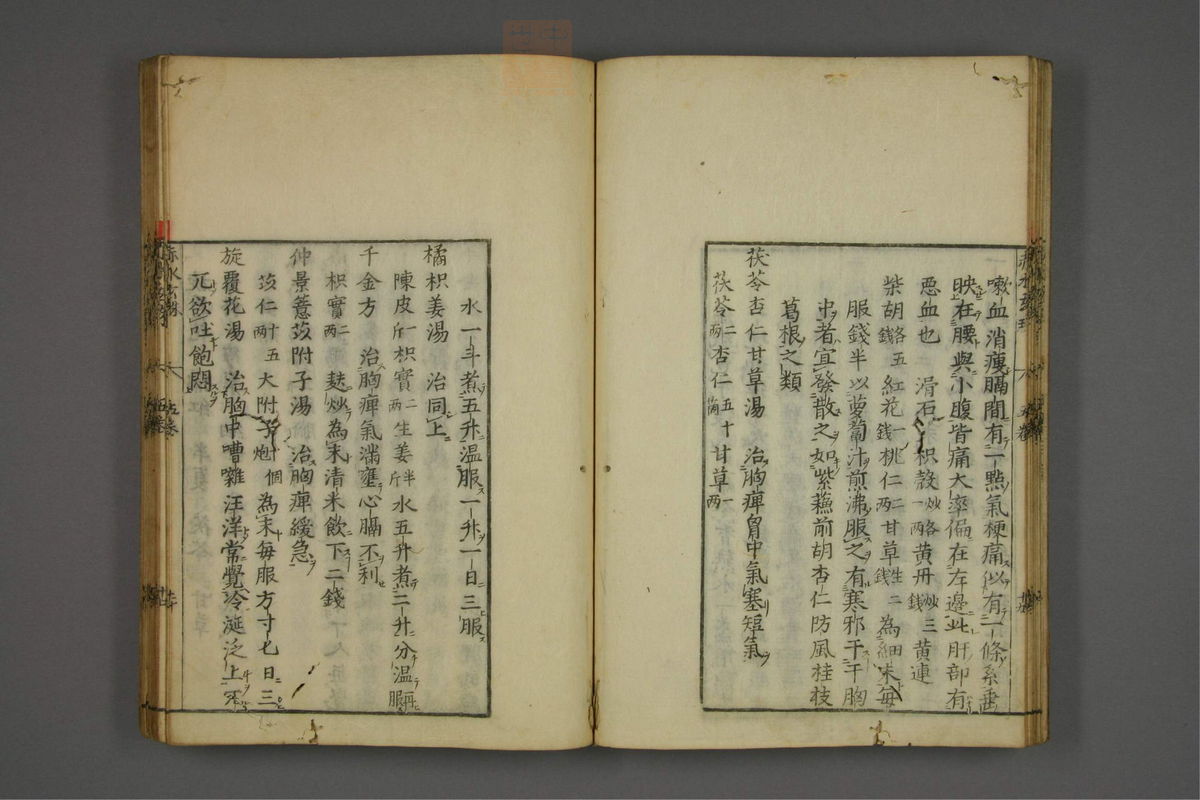 嗽血消瘦膈間有一點氣梗痛以有一條系垂
映在腰與小腹皆痛大率偏在左邊此肝部有
惡血也　滑石枳殼炒各一兩黃丹炒三錢黃連
柴胡各五錢紅花一錢桃仁二兩甘草生二錢為細末每
服錢半以蘿蔔汁煎沸服之有寒邪干于胸
中者宜發散之如紫蘓前胡杏仁防風桂枝
葛根之類
茯苓杏仁甘草湯　治胸痺胷中氣塞短氣
茯苓二兩杏仁五十箇甘草一兩
水一斗煮五升温服一升一日三服
橘枳姜湯　治同上
陳皮一斤枳實二兩生姜半斤水五升煮二升分温再服
千金方　治胸痺氣滿壅心膈不利
枳實二兩麩炒為末清米飲下二錢
仲景薏苡附子湯　治胸痺緩急
苡仁十五兩大附子個炮為末每服方寸匕日三
旋覆花湯　治胸中嘈雜汪洋常覺冷涎泛上
兀欲吐飽悶
赤水玄珠
五卷